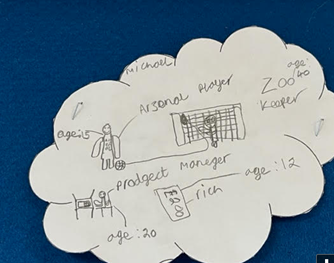 michael
age:
40
Zoo
Keeper
Arsenal Player
age:5
Prodgect Maneger
age:12
£200
rich
age:20